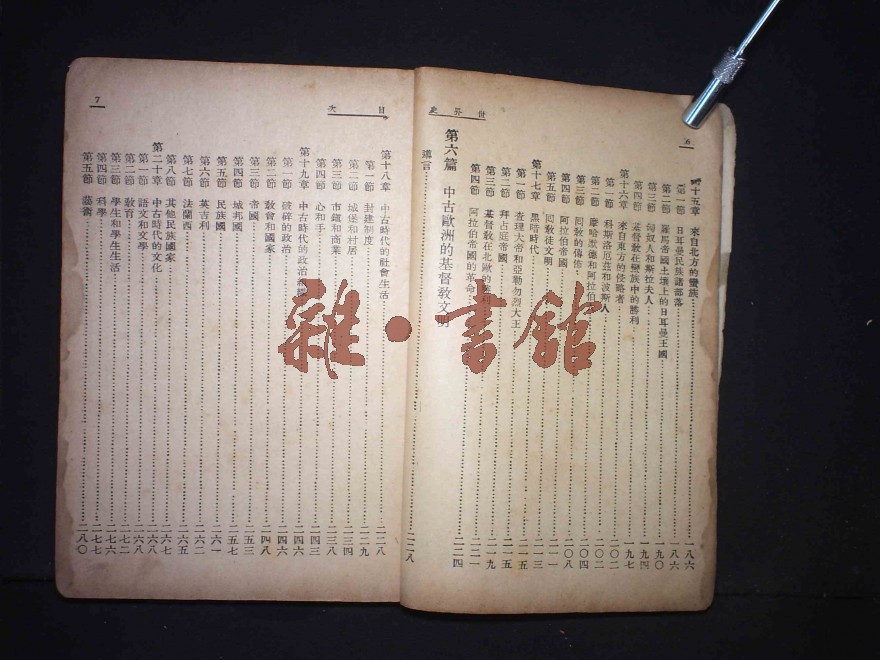 世界史
6
第十五章 來自北方的蠻族……一八六
第一節 日耳曼民族諸部落……一八六
第二節 羅馬帝國土壤上的日耳曼王國……一九〇
第三節 匈奴人和斯拉夫人……一九四
第四節 基督敎在蠻族中的勝利……一九七
第十六章 來自東方的侵略者……二〇二
第一節 科斯洛厄茲和波斯人……二〇二
第二節 摩哈默德和阿拉伯……二〇四
第三節 回敎的傳佈……二〇八
第四節 阿拉伯帝國……二一一
第五節 回敎徒文明……二一三
第十七章 黑暗時代……二一五
第一節 查理大帝和亞勒勿烈大王……二一五
第二節 拜占庭帝國……二一九
第三節 基督敎在北歐的勝利……二二一
第四節 阿拉伯帝國的革命……二二四
第六篇 中古歐洲的基督敎文明
導言……二二八
目次
7
第十八章 中古時代的社會生活……二二八
第一節 封建制度……二二九
第二節 城堡和村居……二三四
第三節 市鎭和商業……二三八
第四節 心和手……二四三
第十九章 中古時代的政治組織……二四六
第一節 破碎的政治……二四六
第二節 敎會和國家……二四八
第三節 帝國……二五三
第四節 城邦國……二五七
第五節 民族國……二六一
第六節 英吉利……二六二
第七節 法蘭西……二六五
第八節 其他民族國家……二六七
第二十章 中古時代的文化……二六八
第一節 語文和文學……二六八
第二節 敎育……二七二
第三節 學生和學生生活……二七六
第四節 科學……二七七
第五節 藝術……二八〇
雜·書館